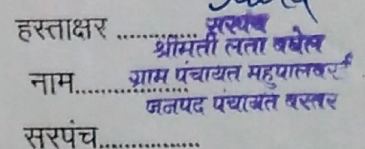 हस्ताक्षर ............ सरपंच
श्रीमती लता बघेल
नाम.................. ग्राम पंचायत महुपालबरई
जनपद पंचायत बस्तर
सरपंच..................